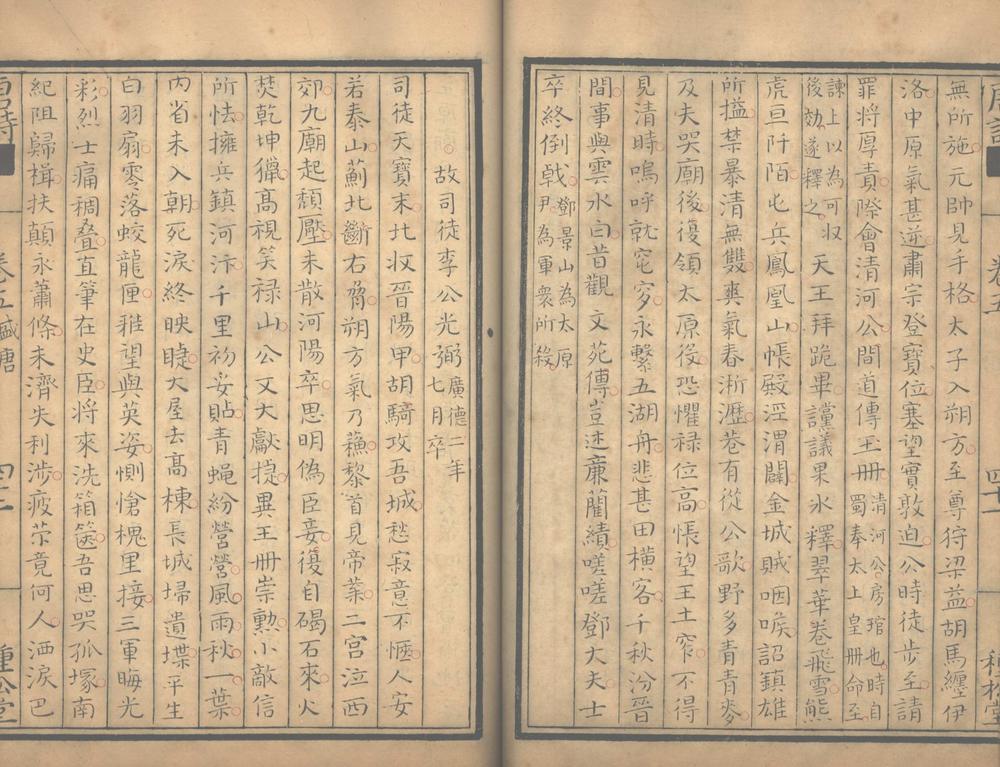 無所施元帥見手格太子入朔方至尊狩梁益胡馬纏伊
洛中原氣甚逆肅宗登寶位塞望實敦迫公時徒步至請
罪將厚責際會清河公間道傳玉冊清河公房琯也時自蜀奉太上皇冊命至
諫上以為可収後効遂釋之天王拜跪畢讜議果氷釋翠華卷飛雪熊
虎亘阡陌屯兵鳳凰山帳殿涇渭闢金城賊咽喉詔鎮雄
所搤禁暴清無雙爽氣春淅瀝巷有從公歌野多青青麥
及夫哭廟後復領太原役恐懼禄位高悵望王土窄不得
見清時嗚呼就窀穸永繫五湖舟悲甚田横客千秋汾晉
間事與雲水白昔觀文苑傳豈述廉藺績嗟嗟鄧大夫士
卒終倒戟鄧景山為太原尹為軍衆所殺
故司徒李公光弼廣德二年七月卒
司徒天寶末北収晉陽甲胡騎攻吾城愁寂意不愜人安
若泰山薊北斷右脅朔方氣乃蘇黎首見帝業二宮泣西
郊九廟起頹壓未散河陽卒思明偽臣妾復自碣石來火
焚乾坤獵高視笑禄山公又大獻捷異王冊崇勲小敵信
所怯擁兵鎮河汴千里初妥貼青蝿紛營營風雨秋一葉
内省未入朝死淚終映睫大屋去高棟長城埽遺堞平生
白羽扇零落蛟龍匣雅望與英姿惻愴槐里接三軍晦光
彩烈士痛稠疊直筆在史臣將來洗箱篋吾思哭孤塚南
紀阻歸楫扶顛永蕭條未濟失利涉疲苶竟何人洒淚巴
卷五盛唐